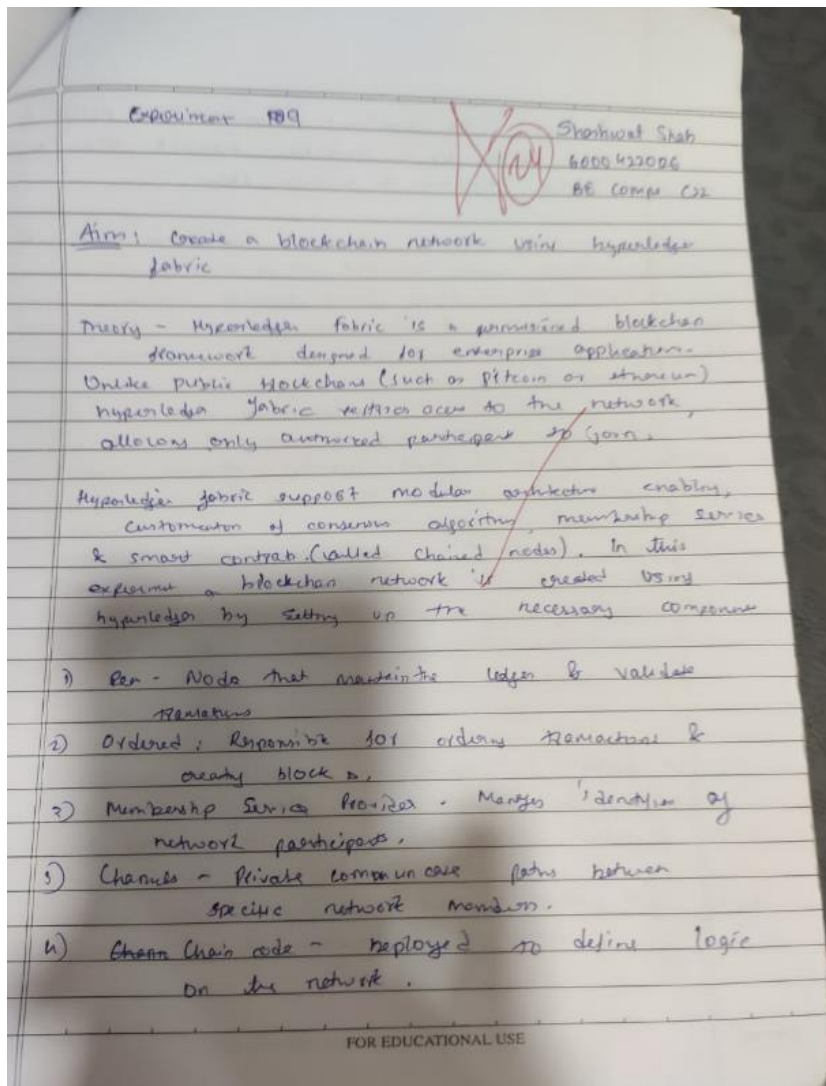 Experiment 09
24
Shashwat Shah
BE Comps C22
Aim: Create a blockchain network using hyperledger
fabric
Theory - Hyperledger fabric is a permissioned blockchan
framework designed for enterprise application.
Unlike public blockchans (such as Bitcoin or ethereum)
hyperledger fabric restrics acces to the network,
allowing only authorized participant to join.
Hyperledger fabric support modular architecture enabling,
customization of consensus algorithms, membership services
& smart contrab. (called chained nodes). In this
experiment a blockchan network is created using
hyperledger by setting up the necessary component
1) Peer - Node that maintain the ledger & validate
transations
2) Ordered : Responsible for ordering transactions &
creating block s.
3) Membership Service Provider - Manges identities of
network participants.
3) Channels - Private communcase paths between
specific network members.
4) Chain code - Deployed to define logic
on the network.
FOR EDUCATIONAL USE